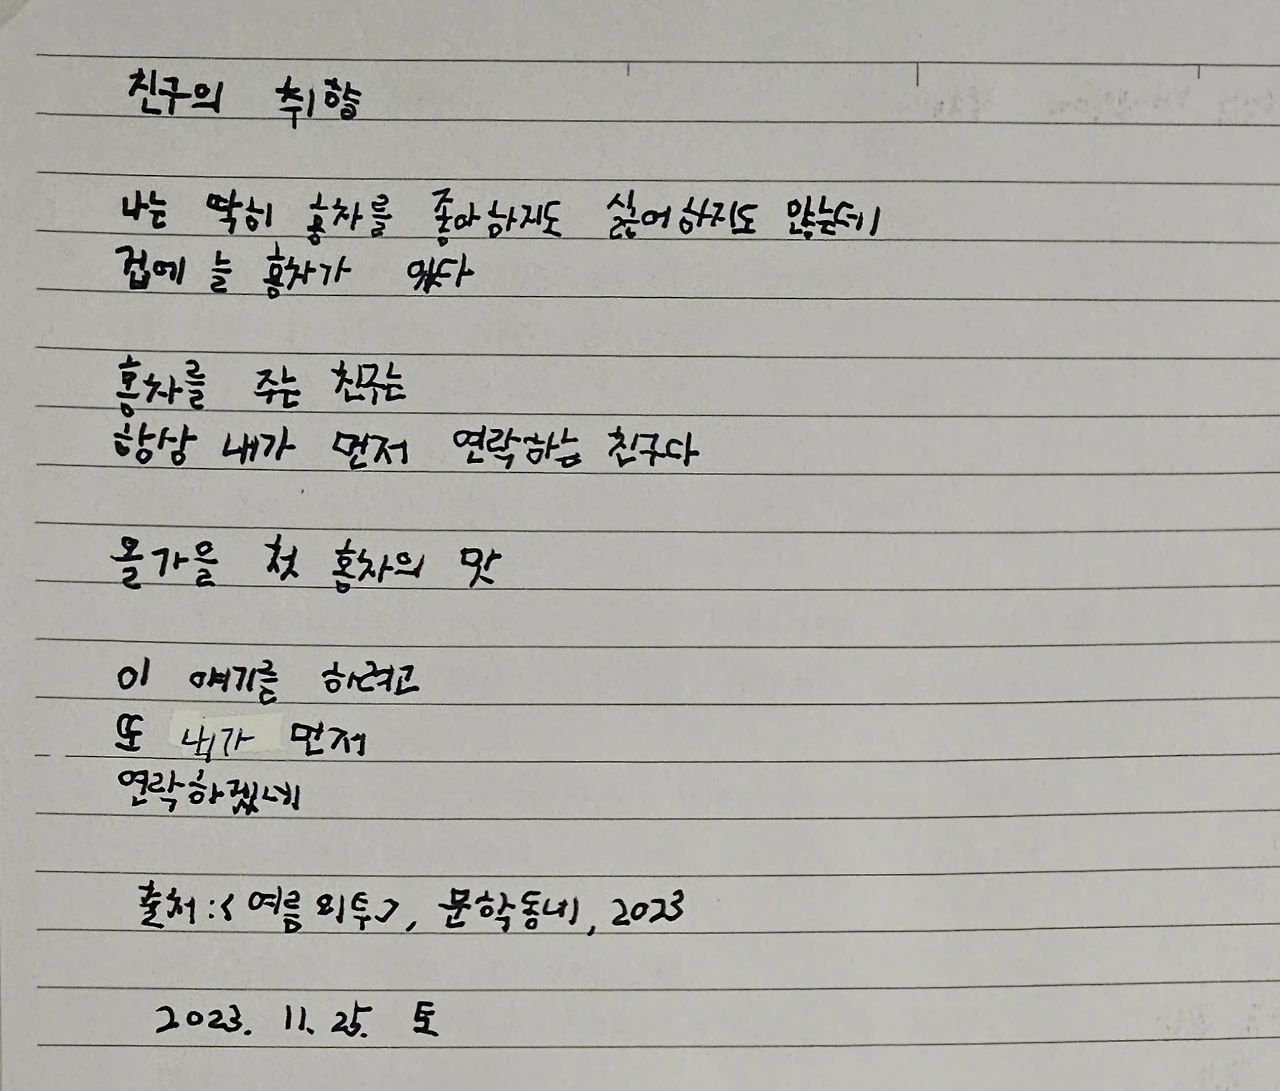 친구의 취향
나는 딱히 홍차를 좋아하지도 싫어하지도 않는데
집에 늘 홍차가 있다
홍차를 주는 친구는
항상 내가 먼저 연락하는 친구다
올가을 첫 홍차의 맛
이 얘기를 하려고
또 내가 먼저
연락하겠네
출처:<여름 외투>, 문학동네, 2023
2023. 11. 25. 토